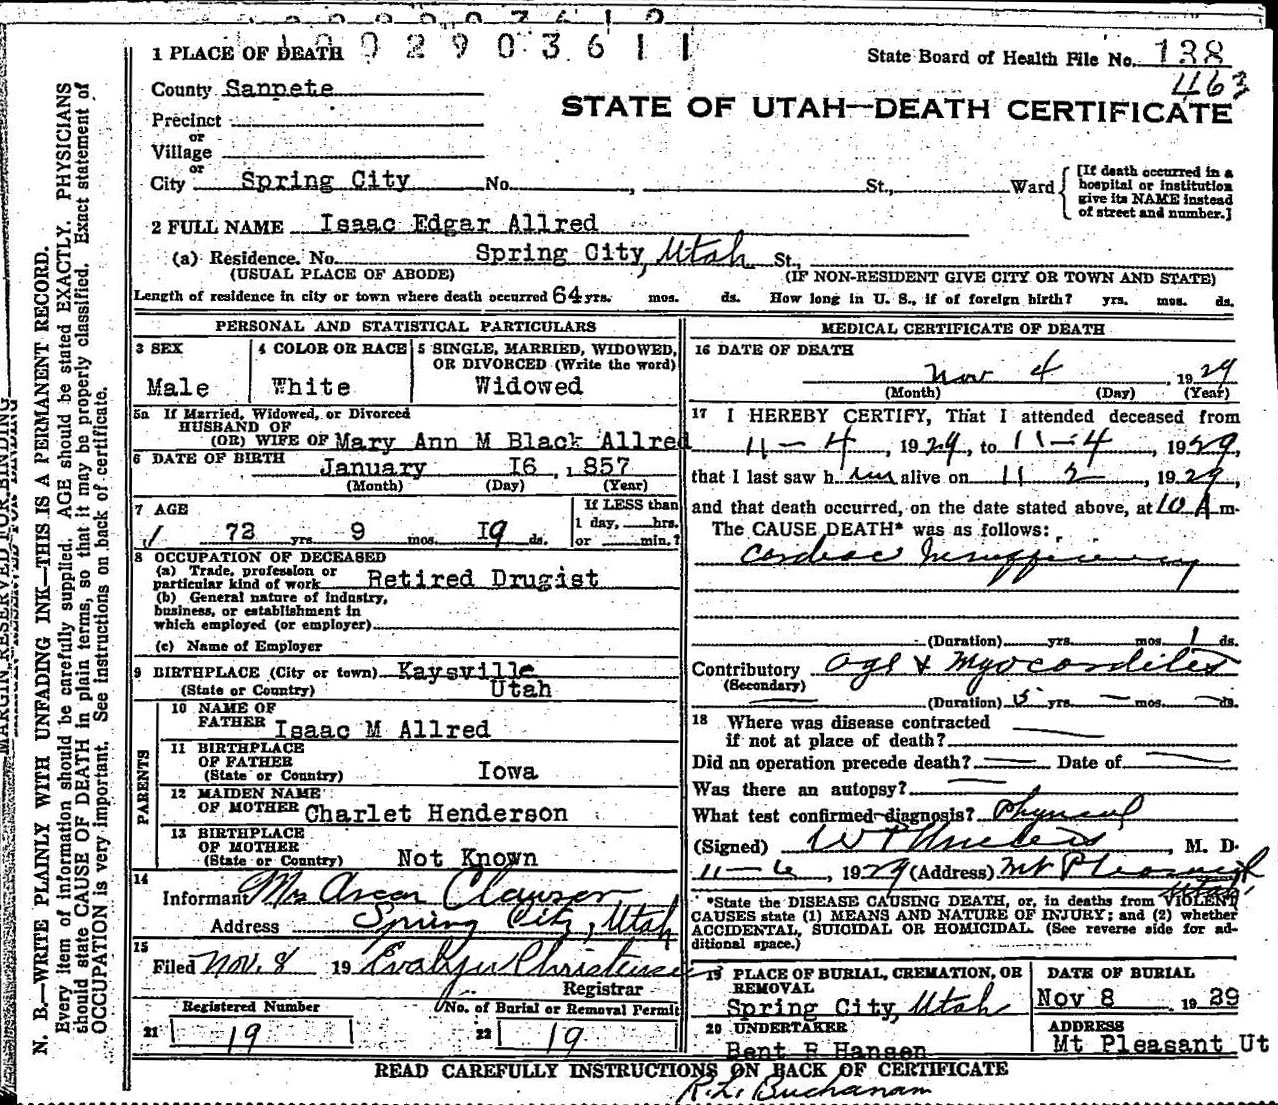 1002903611
1 PLACE OF DEATH
State Board of Health File No. 138
463
County Sanpete
STATE OF UTAH—DEATH CERTIFICATE
Precinct
or
Village
or
City Spring City No. , St., Ward
[If death occurred in a
hospital or institution
give its NAME instead
of street and number.]
2 FULL NAME Isaac Edgar Allred
(a) Residence. No. Spring City, Utah St.,
(USUAL PLACE OF ABODE) (IF NON-RESIDENT GIVE CITY OR TOWN AND STATE)
Length of residence in city or town where death occurred 64 yrs. mos. ds. How long in U. S., if of foreign birth? yrs. mos. ds.
PERSONAL AND STATISTICAL PARTICULARS
3 SEX
Male
4 COLOR OR RACE
White
5 SINGLE, MARRIED, WIDOWED,
OR DIVORCED (Write the word)
Widowed
5a If Married, Widowed, or Divorced
HUSBAND OF
(OR) WIFE OF Mary Ann M Black Allred
6 DATE OF BIRTH
January I6, 1857
(Month) (Day) (Year)
7 AGE
72 yrs. 9 mos. I9 ds.
If LESS than
1 day, hrs.
or min.?
8 OCCUPATION OF DECEASED
(a) Trade, profession or
particular kind of work Retired Drugist
(b) General nature of industry,
business, or establishment in
which employed (or employer)
(c) Name of Employer
9 BIRTHPLACE (City or town) Kaysville
(State or Country) Utah
PARENTS
10 NAME OF
FATHER Isaac M Allred
11 BIRTHPLACE
OF FATHER
(State or Country) Iowa
12 MAIDEN NAME
OF MOTHER Charlet Henderson
13 BIRTHPLACE
OF MOTHER
(State or Country) Not Known
14
Informant Mrs Oscar Clawson
Address Spring City, Utah
15
Filed Nov. 8 19 Evalyn Christensen
Registrar
Registered Number
21 19
No. of Burial or Removal Permit
22 19
MEDICAL CERTIFICATE OF DEATH
16 DATE OF DEATH
Nov 4, 1929
(Month) (Day) (Year)
17 I HEREBY CERTIFY, That I attended deceased from
11-4, 1929, to 11-4, 1929,
that I last saw him alive on 11 2, 1929,
and that death occurred, on the date stated above, at 10 A m.
The CAUSE DEATH* was as follows:
Cardiac Insufficiency
(Duration) yrs. mos. 1 ds.
Contributory Age & Myocarditis
(Secondary)
(Duration) 5 yrs. — mos. — ds.
18 Where was disease contracted
if not at place of death?
Did an operation precede death? — Date of —
Was there an autopsy? —
What test confirmed diagnosis? Physical
(Signed) , M. D.
11-6, 1929 (Address) Mt Pleasant
Utah
*State the DISEASE CAUSING DEATH, or, in deaths from VIOLENT
CAUSES state (1) MEANS AND NATURE OF INJURY; and (2) whether
ACCIDENTAL, SUICIDAL OR HOMICIDAL. (See reverse side for ad-
ditional space.)
19 PLACE OF BURIAL, CREMATION, OR
REMOVAL
Spring City, Utah
DATE OF BURIAL
Nov 8 1929
20 UNDERTAKER
Bent R Hansen
ADDRESS
Mt Pleasant Ut
READ CAREFULLY INSTRUCTIONS ON BACK OF CERTIFICATE
R. L. Buchanan
MARGIN RESERVED FOR BINDING
N. B.—WRITE PLAINLY WITH UNFADING INK—THIS IS A PERMANENT RECORD.
Every item of information should be carefully supplied. AGE should be stated EXACTLY. PHYSICIANS
should state CAUSE OF DEATH in plain terms, so that it may be properly classified. Exact statement of
OCCUPATION is very important. See instructions on back of certificate.